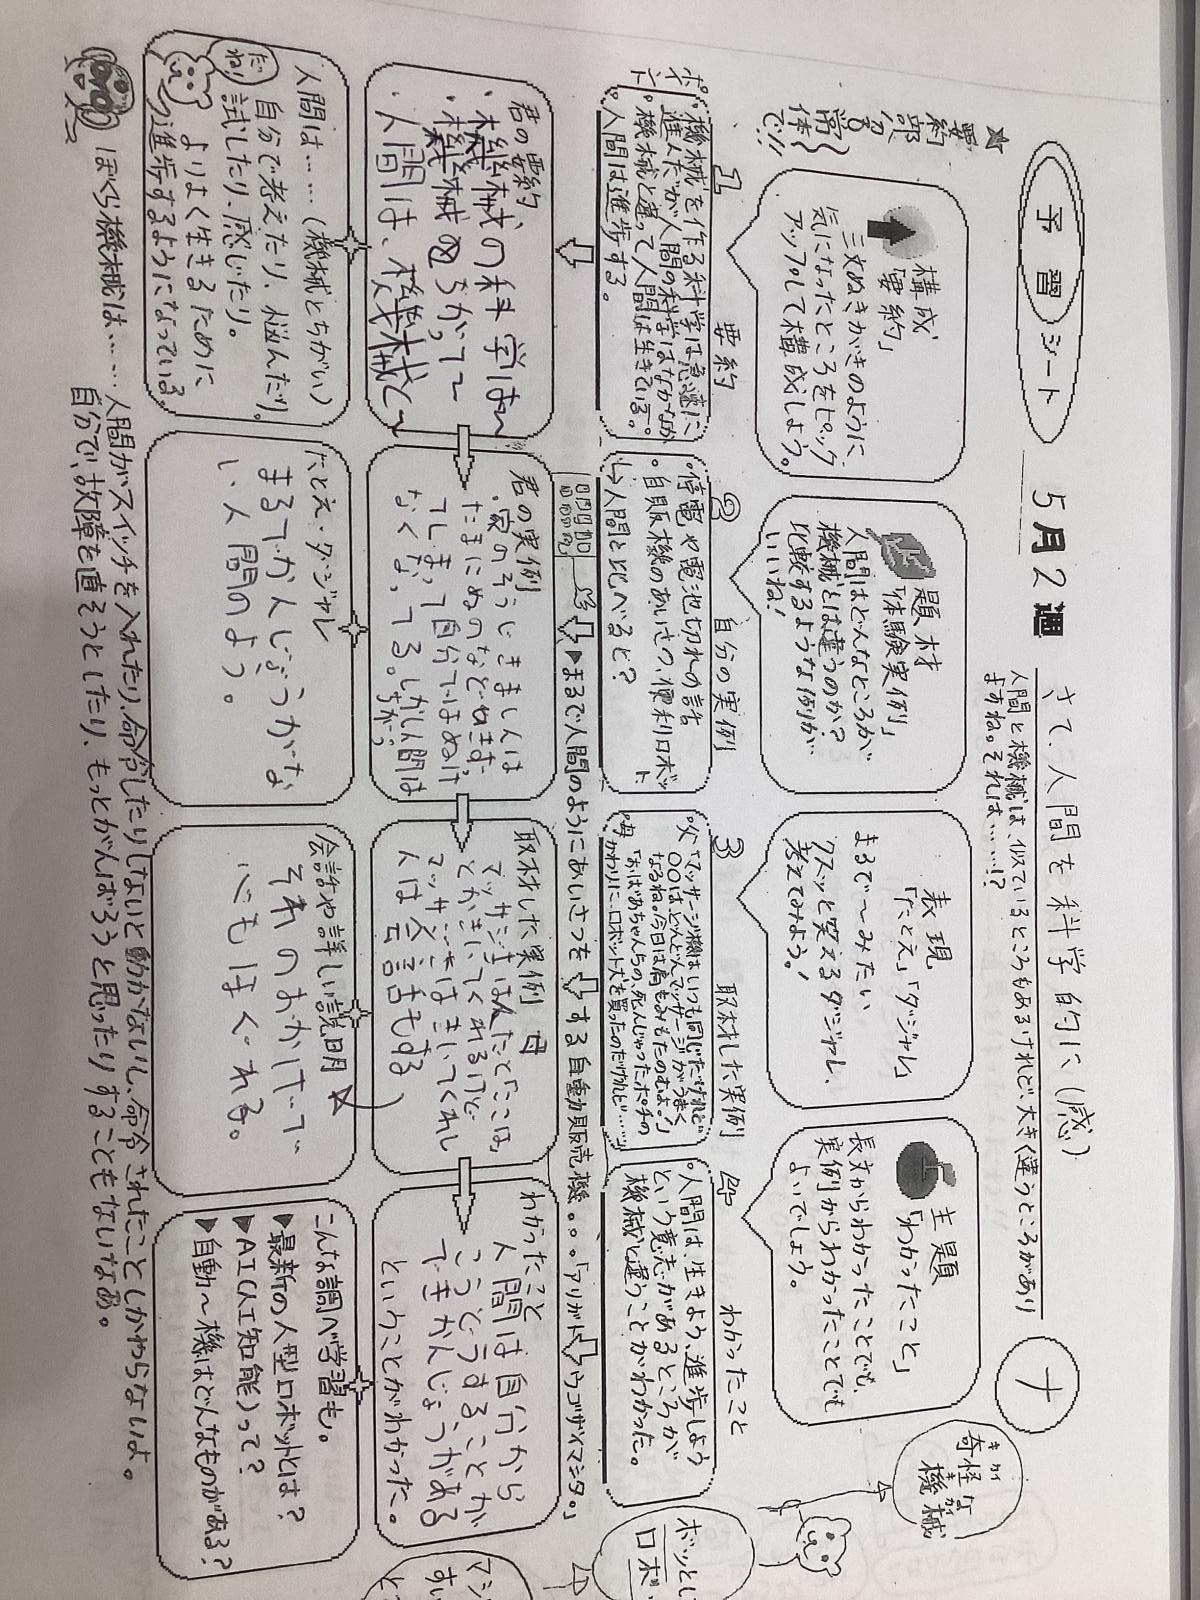 予習シート
5月2週
さて、人間を科学的に(感)
人間と機械は、似ているところもあるけれど、大きく違うところがあり
ますね。それは……!?
ナ
★要約部分は常体で!!
構成
「要約」
三文ぬきがきのように、
気になったところをピック
アップして構成しよう。
題材
「体験実例」
人間はどんなところが
機械とは違うのか?
比較するような例が
いいね!
表現
「たとえ」「ダジャレ」
まるで〜みたい
クスッと笑えるダジャレ、
考えてみよう!
主題
「わかったこと」
長文からわかったことでも、
実例からわかったことでも
よいでしょう。
奇怪な
キカイ
機械
キカイ
1 要約
2 自分の実例
3 取材した実例
4 わかったこと
ポイント
・機械を作る科学は急速に
進んだが人間の科学はなかなか
・機械と違って人間は生きている。
・人間は進歩する。
・停電や電池切れの話
・自販機のあいさつ、便利ロボット
↳人間と比べると?
・父「マッサージ機はいつも同じだけれど
〇〇はどんどんマッサージがうまく
なるね。今日は肩もみもたのむよ。」
・母「おばあちゃんちの、死んじゃったポチの
かわりに、ロボット犬を買ったのだけれど……」
・人間は、生きよう、進歩しよう
という意志があるところが
機械と違うことがわかった。
ボッとし
ロボ
▶まるで人間のようにあいさつをする自動販売機。。。「アリガトウゴザイマシタ。」
君の要約
・機械の科学は〜
・機械とちがって
・人間は、機械と〜
君の実例
家のそうじきましんは
たまにぬのなどぬきす
てしまって自分ではぬけ
なくなってる。しかし人間は
ちがう
取材した実例 母
マッサジきは人だと「ここは」
とかきいてくれるけど
マッサジきはきいてくれし
人は会話もする
わかったこと
人間は自分から
こうどうすることが
できかんじょうがある
ということがわかった。
マジ
すい
と
人間は……(機械とちがい)
自分で考えたり、悩んだり、
試したり、感じたり。
よりよく生きるために
進歩するようになっている
だね!
たとえ・ダジャレ
まるでか人じょうがな
い人間のよう。
会話や詳しい説明
それのおかげで
心もほぐれる。
こんな調べ学習も。
▶最新の人型ロボットとは?
▶AI(人工知能)って?
▶自動〜機はどんなものがある?
ぼくら機械は……人間がスイッチを入れたり、命令したりしないと動かないし、命令されたことしかわからないよ。
自分で、故障を直そうとしたり、もっとがんばろうと思ったりすることもないなあ。